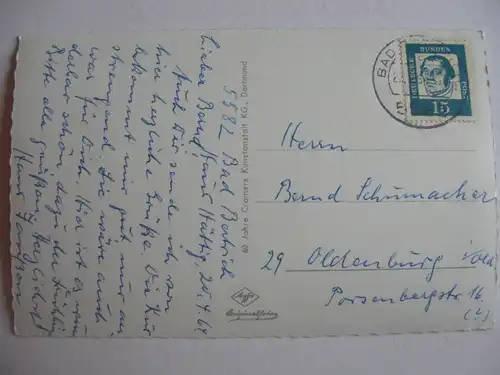 5582 Bad Bertrich
Haus Hüttig, 20.4.64
Lieber Bernd!
Auch Dir sende ich von
hier herzliche Grüße. Die Kur
bekommt mir gut nur an
strengend. Sie wäre auch
was für Dich. Hier ist es
schon
Bitte alle grüßen. Herzlichst
Hans
60 Jahre Cramers Kunstanstalt KG., Dortmund
Agfa
Originalfoto
BAD
DEUTSCHE
BUNDES
POST
15
Herrn
Bernd Schumacher
29 Oldenburg i/Old
Porsenbergstr 16
(L)